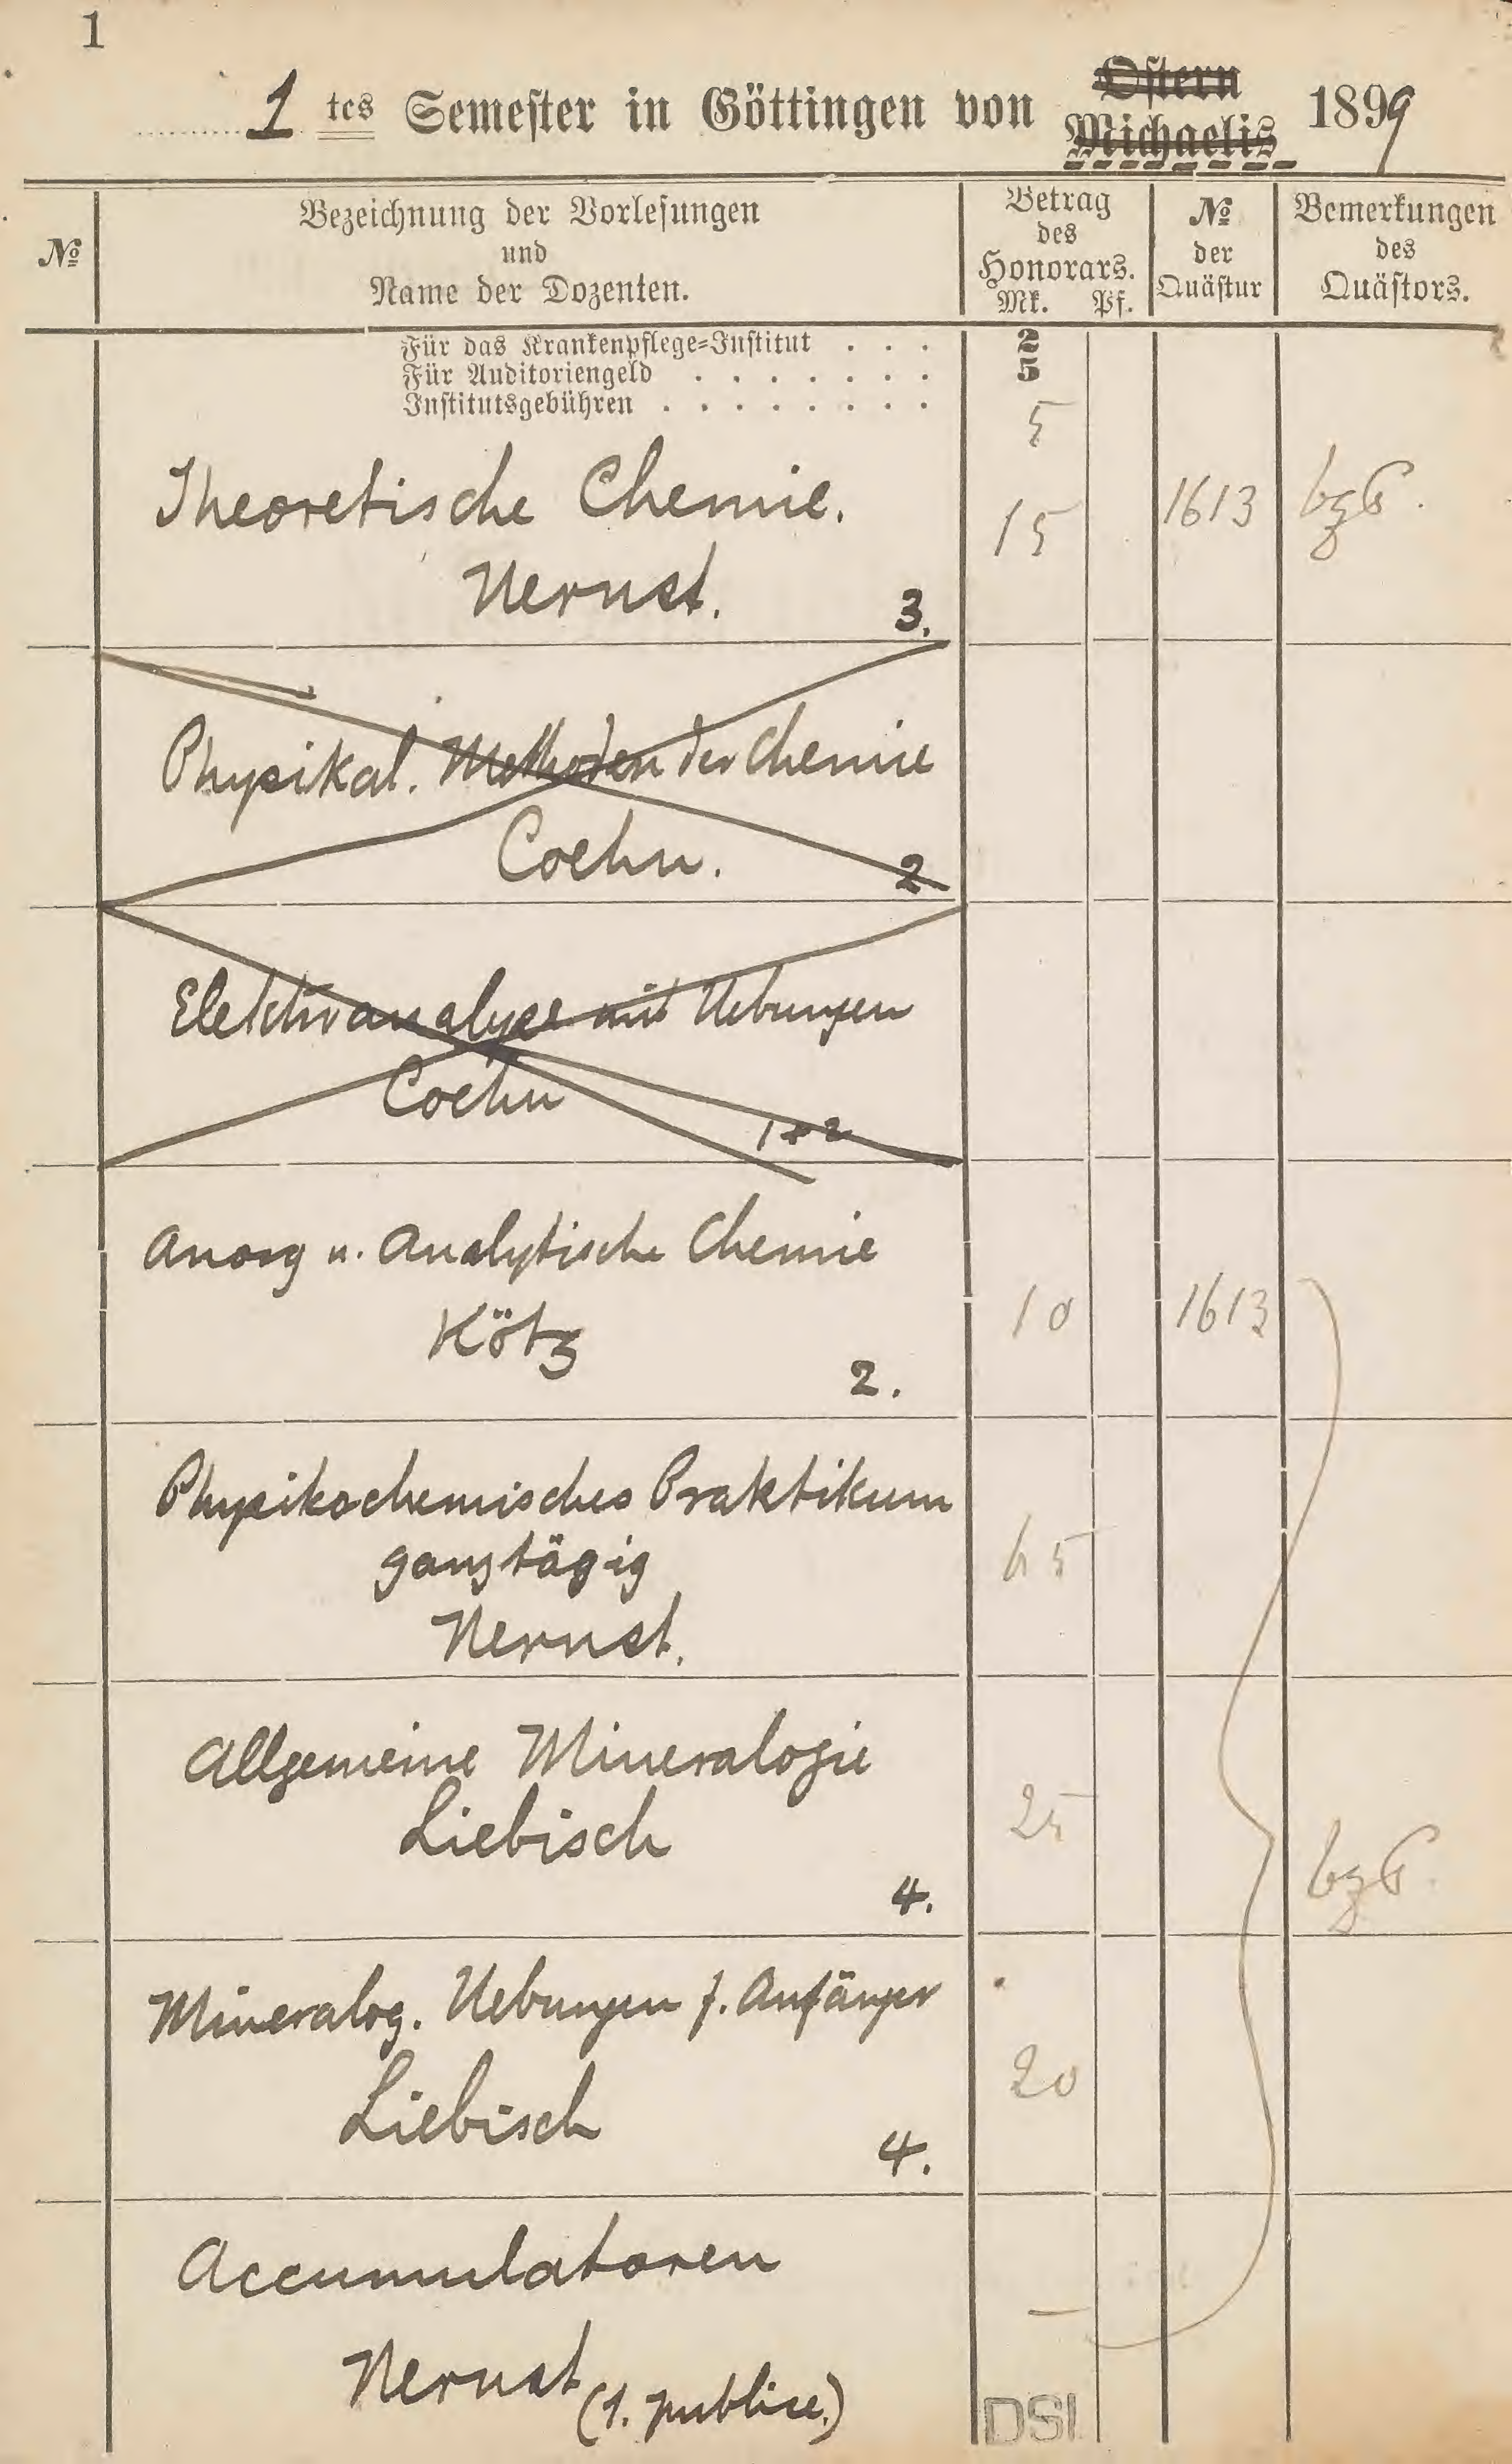 1
1 tes Semester in Göttingen von Ostern Michaelis 1899
№
Bezeichnung der Vorlesungen
und
Name der Dozenten.
Betrag
des
Honorars.
Mk. Pf.
№
der
Quästur
Bemerkungen
des
Quästors.
Für das Krankenpflege=Institut . . . 2
Für Auditoriengeld . . . . . . . 5
Institutsgebühren . . . . . . . . 5
Theoretische Chemie. 15 1613 bzt.
Nernst. 3.
Physikal. Methoden der Chemie
Coehn. 2
Elektroanalyse mit Uebungen
Coehn
1+2
Anorg u. Analytische Chemie
Kötz 10 1613
2.
Physikochemisches Praktikum
ganztägig 65
Nernst.
Allgemeine Mineralogie
Liebisch 25
4. bzt.
Mineralog. Uebungen f. Anfänger
Liebisch 20
4.
Accumulatoren
—
Nernst (1. publice.)
DSI